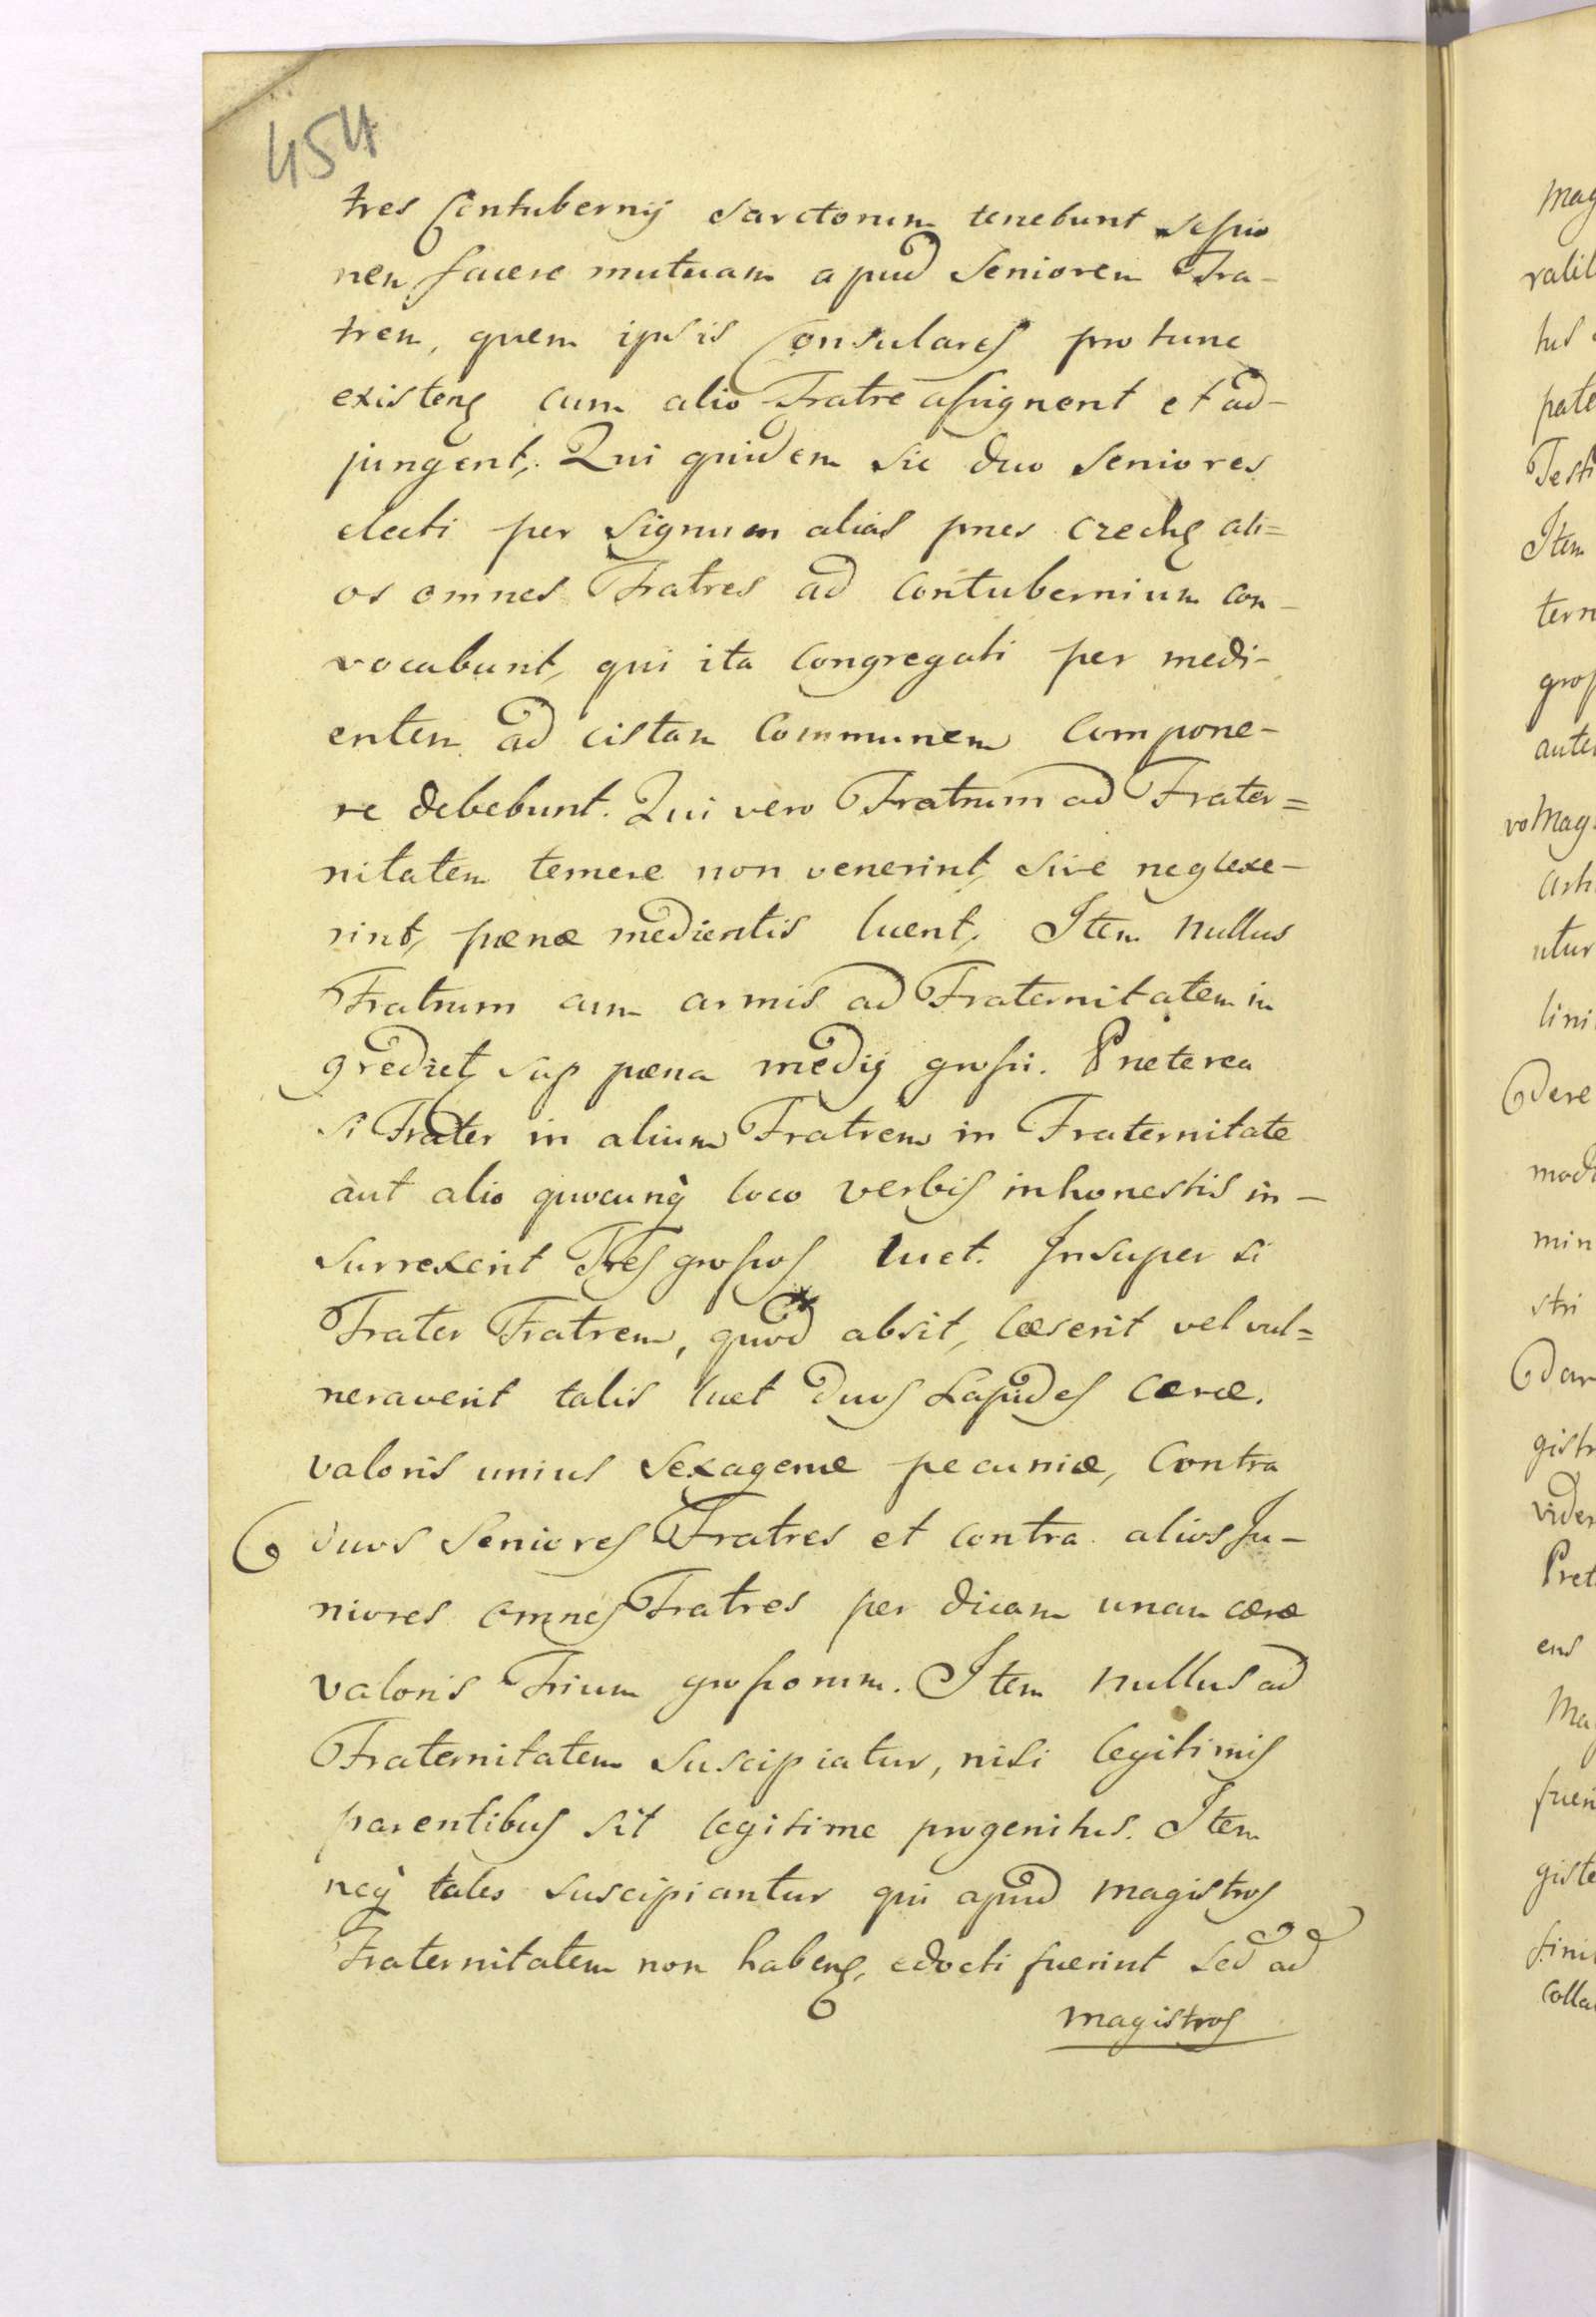 454
tres Contubernij sarctorum tenebunt sessio
nem facere mutuam apud Seniorem Fra-
trem, quem ipsis Consulares pro tunc
existens cum alio Fratre assignent et ad-
jungent, Qui quidem sic duo Seniores
electi per Signum alias pnes czechę ali=
os omnes Fratres ad Contubernium con-
vocabunt, qui ita Congregati per medi-
entem ad cistam Communem Compone-
re debebunt. Qui vero Fratrum ad Frater=
nitatem temere non venerint, sive neglexe-
rint, pænæ medientis luent, Item Nullus
Fratrum cum armis ad Fraternitatem in
grediet, sup pæna medij grossi. Preterea
Si Frater in alium Fratrem in Fraternitate
aut alio quocunq loco verbis inhonestis in-
surrexerit Tres grossos luet. Insuper si
Frater Fratrem, quod absit, læserit vel vul=
neraverit talis luet Duos Lapides Ceræ.
valoris unius Sexagenæ pecuniæ, Contra
duos Seniores Fratres et contra alios Ju-
niores omnes Fratres per dicam unam ceræ
valoris Trium grossorum. Item Nullus ad
Fraternitatem Suscipiatur, nisi legitimis
parentibus sit legitime progenitus. Item
neq tales suscipiantur qui apud Magistros
Fraternitatem non habens, edocti fuerint sed ad
magistros
Mag
ralit
tus
pate
Testi
Item
tern
gros
aute
vo Mag
arti
utur
lini
dere
modo
min
stri
dar
gistr
vider
Pret
ens
Ma
fuer
giste
fini
Colla